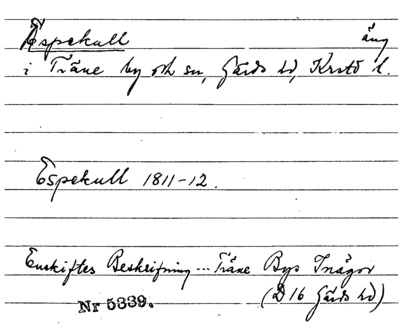 Espekull äng
i Träne by och sn, Gärds hd, Krstd l.
Espekull 1811-12.
Enskiftes Beskrifning ... Träne Bys Inägor
(D 16 Gärds hd)
Nr 5339.